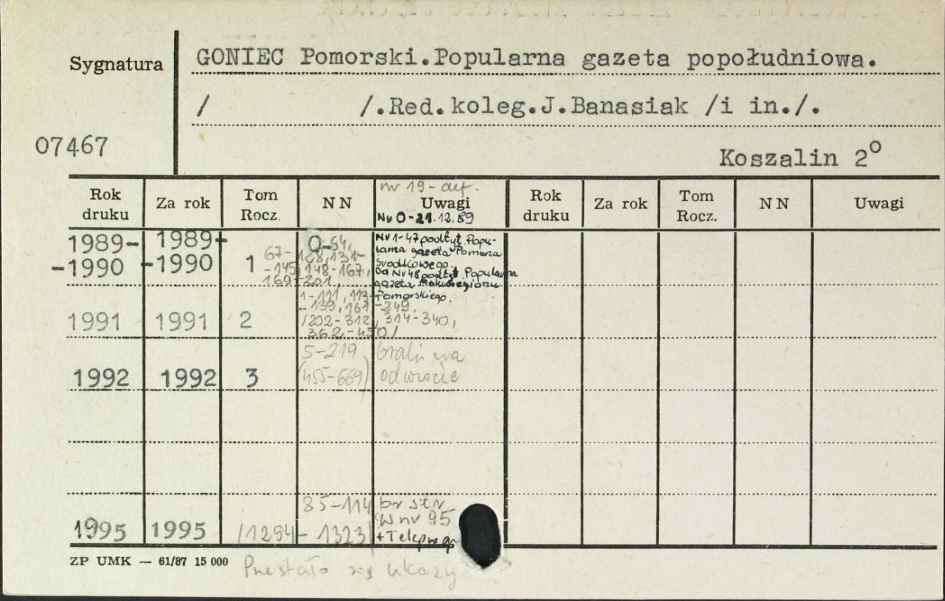 Sygnatura
GONIEC Pomorski.Popularna gazeta popołudniowa.
/ /.Red.koleg.J.Banasiak /i in./.
07467
Koszalin 2°
Rok druku Za rok Tom Rocz. NN Uwagi Rok druku Za rok Tom Rocz. NN Uwagi
nr 19-
Nr 0-21.12.89
1989-
-1990
1989+
-1990
1
0-64,
67-
-145,148-167,
169-201,
Nr 1-47 podtyt. Popu-
larna gazeta Pomorza
Środkowego.
Od Nr 48 podtyt. Popularna
gazeta Makroregionu
Pomorskiego.
1991 1991 2
1-111, 113-
-159, 161-349.
/202-312, 314-340,
362-450/
1992 1992 3
5-219
(455-669)
brak na
odwrocie
1995 1995
85-114
/1294-1323/
br str.
W nr 95
+Teleprogr.
ZP UMK — 61/87 15 000
Przestało się ukazy